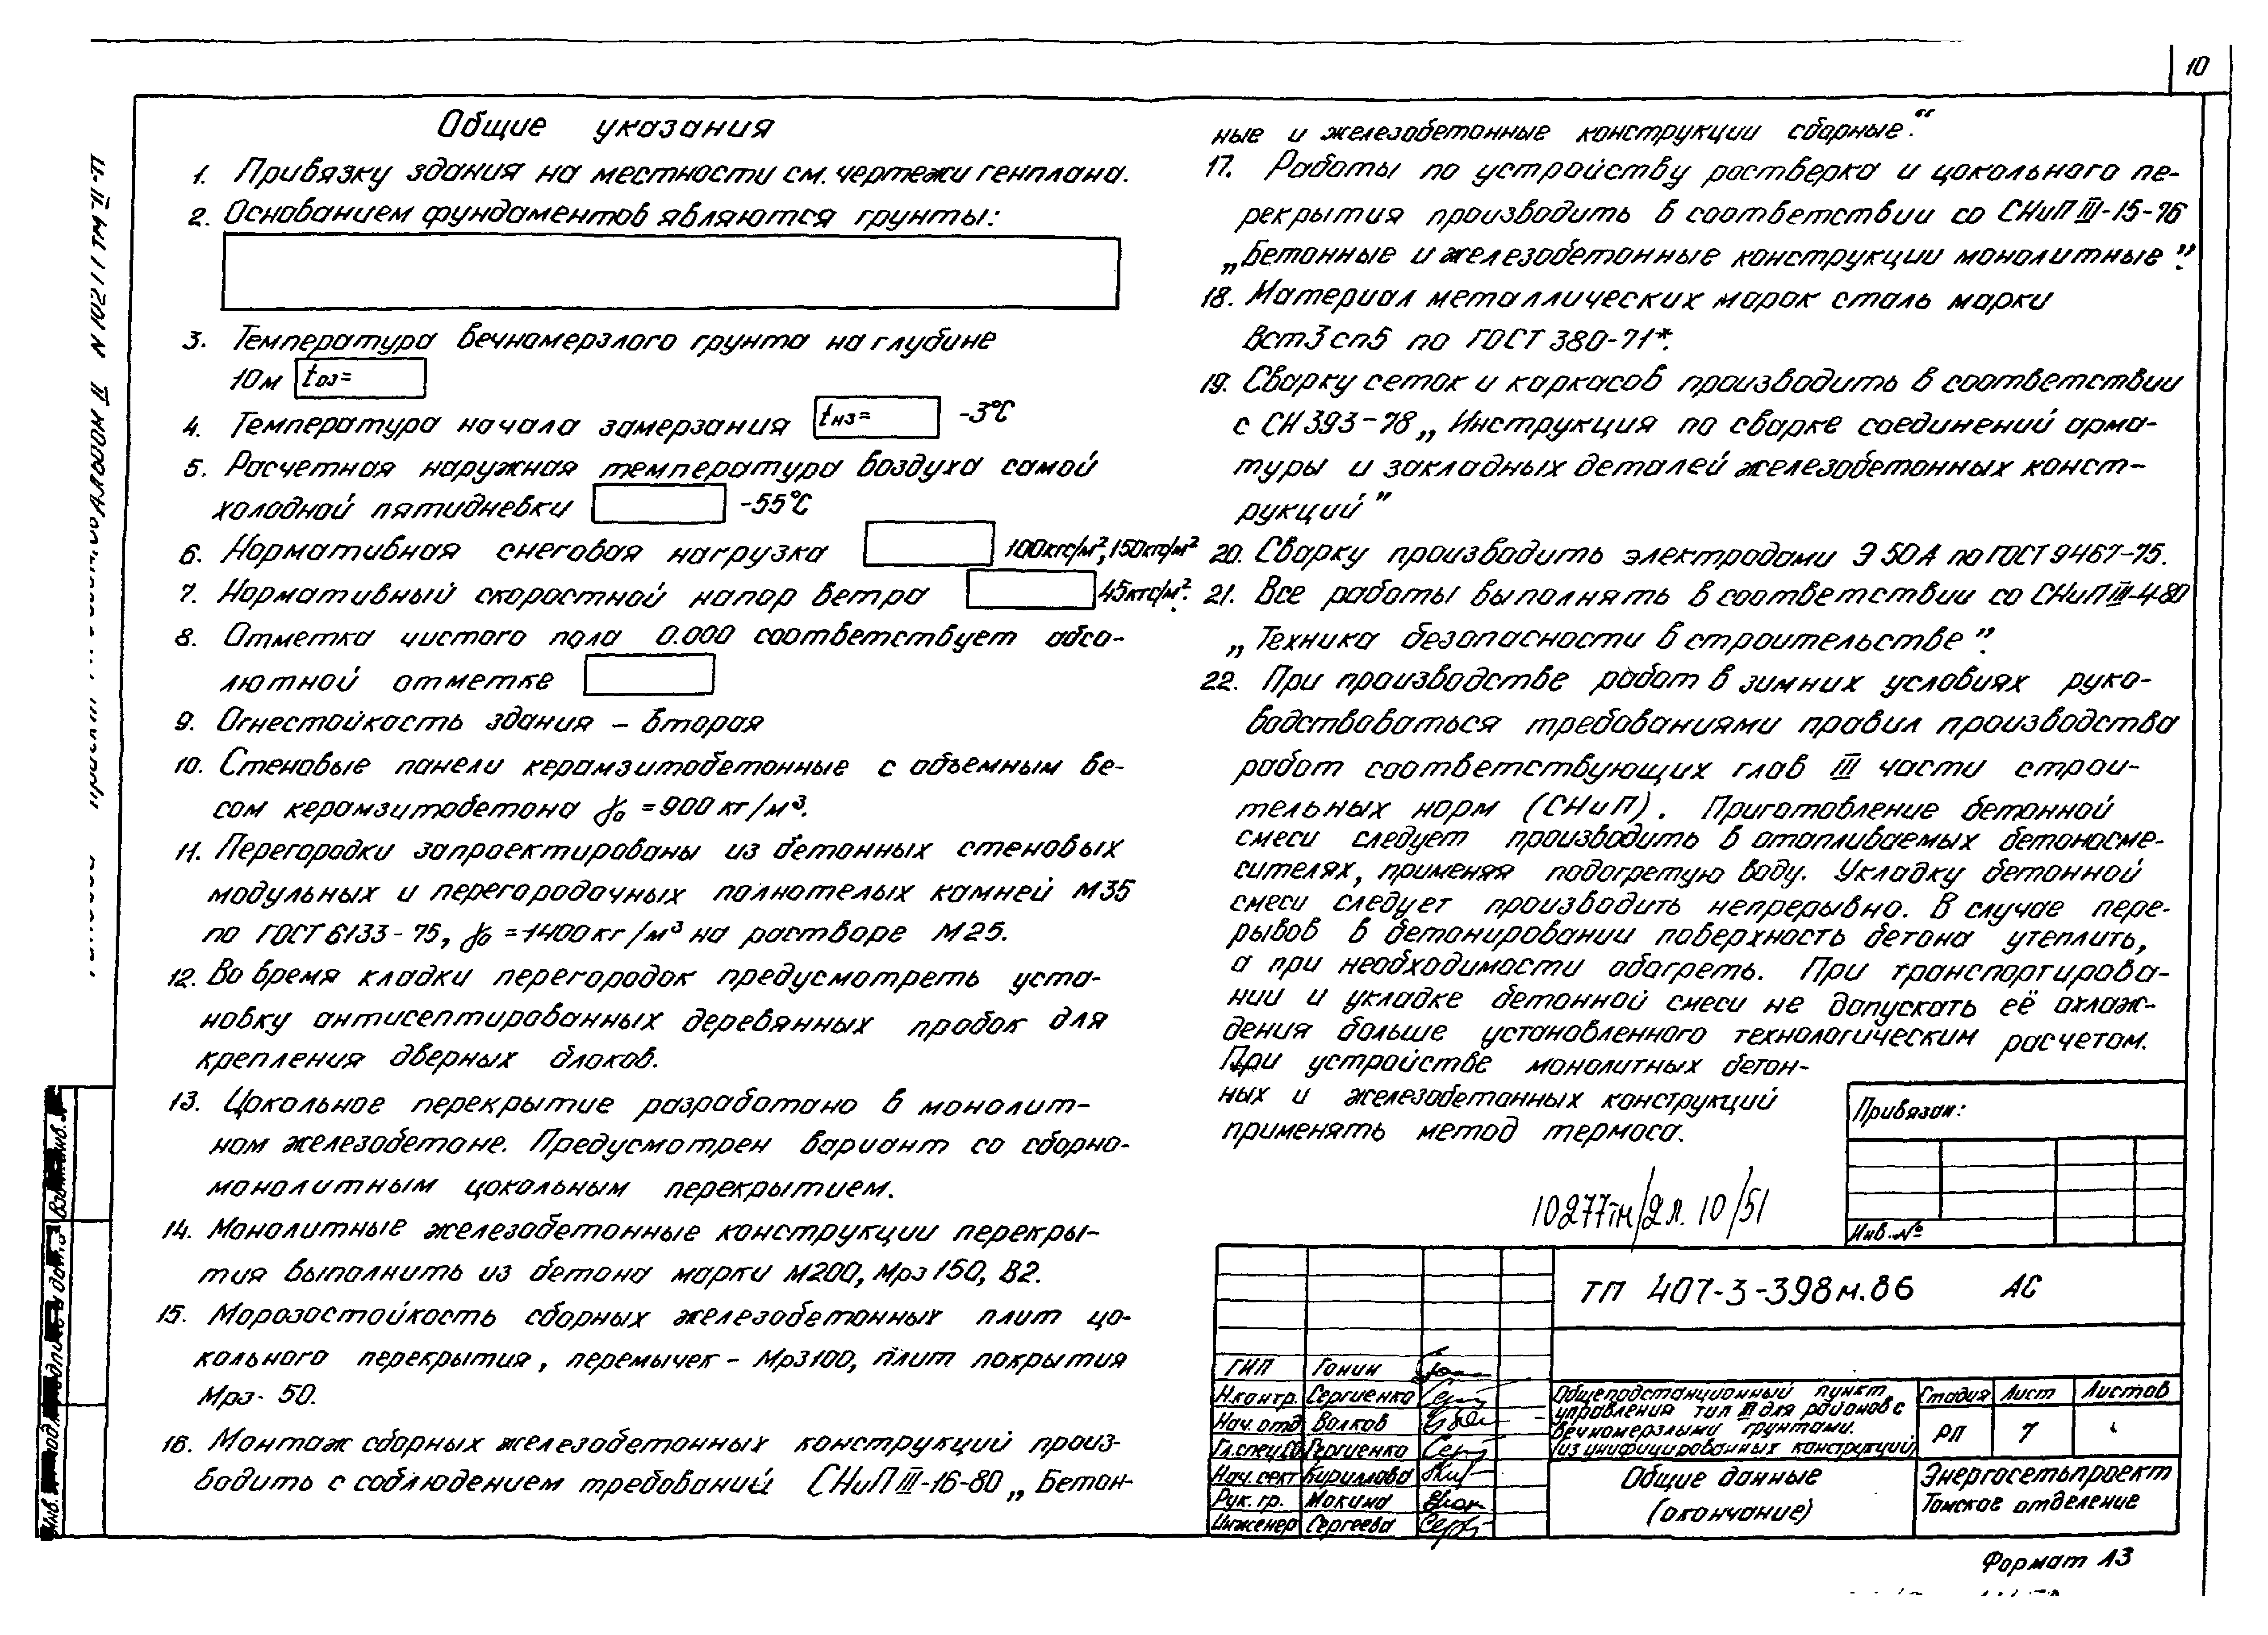 10
Общие указания
1. Привязку здания на местности см. чертежи генплана.
2. Основанием фундаментов являются грунты:
3. Температура вечномерзлого грунта на глубине
10м tоз=
4. Температура начала замерзания tнз= -3°С
5. Расчетная наружная температура воздуха самой
холодной пятидневки -55°С
6. Нормативная снеговая нагрузка 100кгс/м², 150кгс/м²
7. Нормативный скоростной напор ветра 45кгс/м².
8. Отметка чистого пола 0.000 соответствует абсо-
лютной отметке
9. Огнестойкость здания – вторая
10. Стеновые панели керамзитобетонные с объемным ве-
сом керамзитобетона γо =900кг/м³.
11. Перегородки запроектированы из бетонных стеновых
модульных и перегородочных полнотелых камней М35
по ГОСТ 6133-75, γо =1400кг/м³ на растворе М25.
12. Во время кладки перегородок предусмотреть уста-
новку антисептированных деревянных пробок для
крепления дверных блоков.
13. Цокольное перекрытие разработано в монолит-
ном железобетоне. Предусмотрен вариант со сборно-
монолитным цокольным перекрытием.
14. Монолитные железобетонные конструкции перекры-
тия выполнить из бетона марки М200, Мрз 150, В2.
15. Морозостойкость сборных железобетонных плит цо-
кольного перекрытия, перемычек – Мрз100, плит покрытия
Мрз- 50.
16. Монтаж сборных железобетонных конструкций произ-
водить с соблюдением требований СНиП III-16-80 „Бетон-
ные и железобетонные конструкции сборные“.
17. Работы по устройству ростверка и цокольного пе-
рекрытия производить в соответствии со СНиП III-15-76
„Бетонные и железобетонные конструкции монолитные”.
18. Материал металлических марок сталь марки
Вст3сп5 по ГОСТ 380-71*.
19. Сварку сеток и каркасов производить в соответствии
с СН 393-78 „Инструкция по сварке соединений арма-
туры и закладных деталей железобетонных конст-
рукций”
20. Сварку производить электродами Э 50А по ГОСТ 9467-75.
21. Все работы выполнять в соответствии со СНиП III-4-80
„Техника безопасности в строительстве”.
22. При производстве работ в зимних условиях руко-
водствоваться требованиями правил производства
работ соответствующих глав III части строи-
тельных норм (СНиП). Приготовление бетонной
смеси следует производить в отапливаемых бетоносме-
сителях, применяя подогретую воду. Укладку бетонной
смеси следует производить непрерывно. В случае пере-
рывов в бетонировании поверхность бетона утеплить,
а при необходимости обогреть. При транспортирова-
нии и укладке бетонной смеси не допускать её охлаж-
дения больше установленного технологическим расчетом.
При устройстве монолитных бетон-
ных и железобетонных конструкций
применять метод термоса.
10277тм/2 л. 10/51
Привязан:
Инв. №
ТП 407-3-398м.86 АС
ГИП Гонин
Н.контр. Сергиенко
Нач. отд Волков
Гл.спец.СО Сергиенко
Нач. сект Кириллова
Рук. гр. Мокина
Инженер Сергеева
Общеподстанционный пункт
управления тип III для районов с
вечномерзлыми грунтами.
(из унифицированных конструкций)
Стадия Лист Листов
РП 7
Общие данные
(окончание)
Энергосетьпроект
Томское отделение
Формат А3